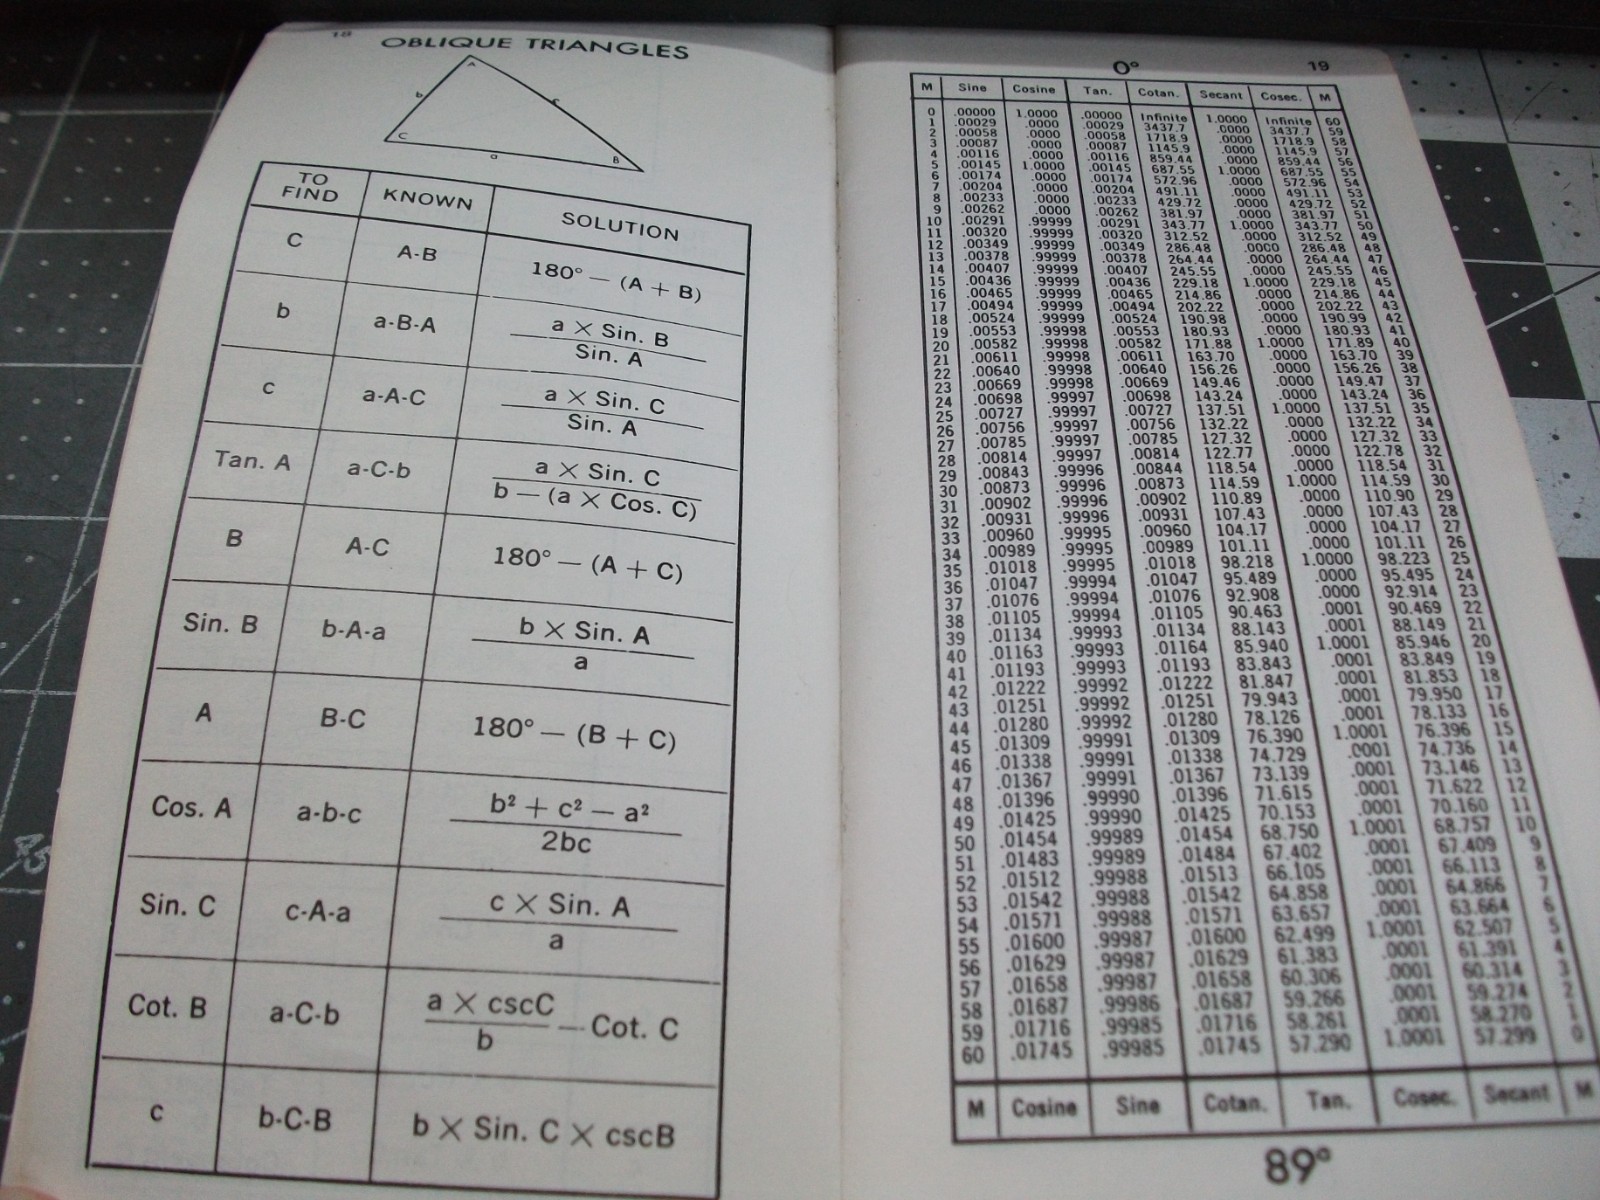 18
OBLIQUE TRIANGLES
A
b
c
C
a
B
TO FIND KNOWN SOLUTION
C A-B 180° — (A + B)
b a-B-A a × Sin. B
Sin. A
c a-A-C a × Sin. C
Sin. A
Tan. A a-C-b a × Sin. C
b — (a × Cos. C)
B A-C 180° — (A + C)
Sin. B b-A-a b × Sin. A
a
A B-C 180° — (B + C)
Cos. A a-b-c b² + c² — a²
2bc
Sin. C c-A-a c × Sin. A
a
Cot. B a-C-b a × cscC — Cot. C
b
c b-C-B b × Sin. C × cscB
0° 19
M Sine Cosine Tan. Cotan. Secant Cosec. M
0 .00000 1.0000 .00000 Infinite 1.0000 Infinite 60
1 .00029 .0000 .00029 3437.7 .0000 3437.7 59
2 .00058 .0000 .00058 1718.9 .0000 1718.9 58
3 .00087 .0000 .00087 1145.9 .0000 1145.9 57
4 .00116 .0000 .00116 859.44 .0000 859.44 56
5 .00145 1.0000 .00145 687.55 1.0000 687.55 55
6 .00174 .0000 .00174 572.96 .0000 572.96 54
7 .00204 .0000 .00204 491.11 .0000 491.11 53
8 .00233 .0000 .00233 429.72 .0000 429.72 52
9 .00262 .0000 .00262 381.97 .0000 381.97 51
10 .00291 .99999 .00291 343.77 1.0000 343.77 50
11 .00320 .99999 .00320 312.52 .0000 312.52 49
12 .00349 .99999 .00349 286.48 .0000 286.48 48
13 .00378 .99999 .00378 264.44 .0000 264.44 47
14 .00407 .99999 .00407 245.55 .0000 245.55 46
15 .00436 .99999 .00436 229.18 1.0000 229.18 45
16 .00465 .99999 .00465 214.86 .0000 214.86 44
17 .00494 .99999 .00494 202.22 .0000 202.22 43
18 .00524 .99999 .00524 190.98 .0000 190.99 42
19 .00553 .99998 .00553 180.93 .0000 180.93 41
20 .00582 .99998 .00582 171.88 1.0000 171.89 40
21 .00611 .99998 .00611 163.70 .0000 163.70 39
22 .00640 .99998 .00640 156.26 .0000 156.26 38
23 .00669 .99998 .00669 149.46 .0000 149.47 37
24 .00698 .99997 .00698 143.24 .0000 143.24 36
25 .00727 .99997 .00727 137.51 1.0000 137.51 35
26 .00756 .99997 .00756 132.22 .0000 132.22 34
27 .00785 .99997 .00785 127.32 .0000 127.32 33
28 .00814 .99997 .00814 122.77 .0000 122.78 32
29 .00843 .99996 .00844 118.54 .0000 118.54 31
30 .00873 .99996 .00873 114.59 1.0000 114.59 30
31 .00902 .99996 .00902 110.89 .0000 110.90 29
32 .00931 .99996 .00931 107.43 .0000 107.43 28
33 .00960 .99995 .00960 104.17 .0000 104.17 27
34 .00989 .99995 .00989 101.11 .0000 101.11 26
35 .01018 .99995 .01018 98.218 1.0000 98.223 25
36 .01047 .99994 .01047 95.489 .0000 95.495 24
37 .01076 .99994 .01076 92.908 .0000 92.914 23
38 .01105 .99994 .01105 90.463 .0001 90.469 22
39 .01134 .99993 .01134 88.143 .0001 88.149 21
40 .01163 .99993 .01164 85.940 1.0001 85.946 20
41 .01193 .99993 .01193 83.843 .0001 83.849 19
42 .01222 .99992 .01222 81.847 .0001 81.853 18
43 .01251 .99992 .01251 79.943 .0001 79.950 17
44 .01280 .99992 .01280 78.126 .0001 78.133 16
45 .01309 .99991 .01309 76.390 1.0001 76.396 15
46 .01338 .99991 .01338 74.729 .0001 74.736 14
47 .01367 .99991 .01367 73.139 .0001 73.146 13
48 .01396 .99990 .01396 71.615 .0001 71.622 12
49 .01425 .99990 .01425 70.153 .0001 70.160 11
50 .01454 .99989 .01454 68.750 1.0001 68.757 10
51 .01483 .99989 .01484 67.402 .0001 67.409 9
52 .01512 .99988 .01513 66.105 .0001 66.113 8
53 .01542 .99988 .01542 64.858 .0001 64.866 7
54 .01571 .99988 .01571 63.657 .0001 63.664 6
55 .01600 .99987 .01600 62.499 1.0001 62.507 5
56 .01629 .99987 .01629 61.383 .0001 61.391 4
57 .01658 .99987 .01658 60.306 .0001 60.314 3
58 .01687 .99986 .01687 59.266 .0001 59.274 2
59 .01716 .99985 .01716 58.261 .0001 58.270 1
60 .01745 .99985 .01745 57.290 1.0001 57.299 0
M Cosine Sine Cotan. Tan. Cosec. Secant M
89°